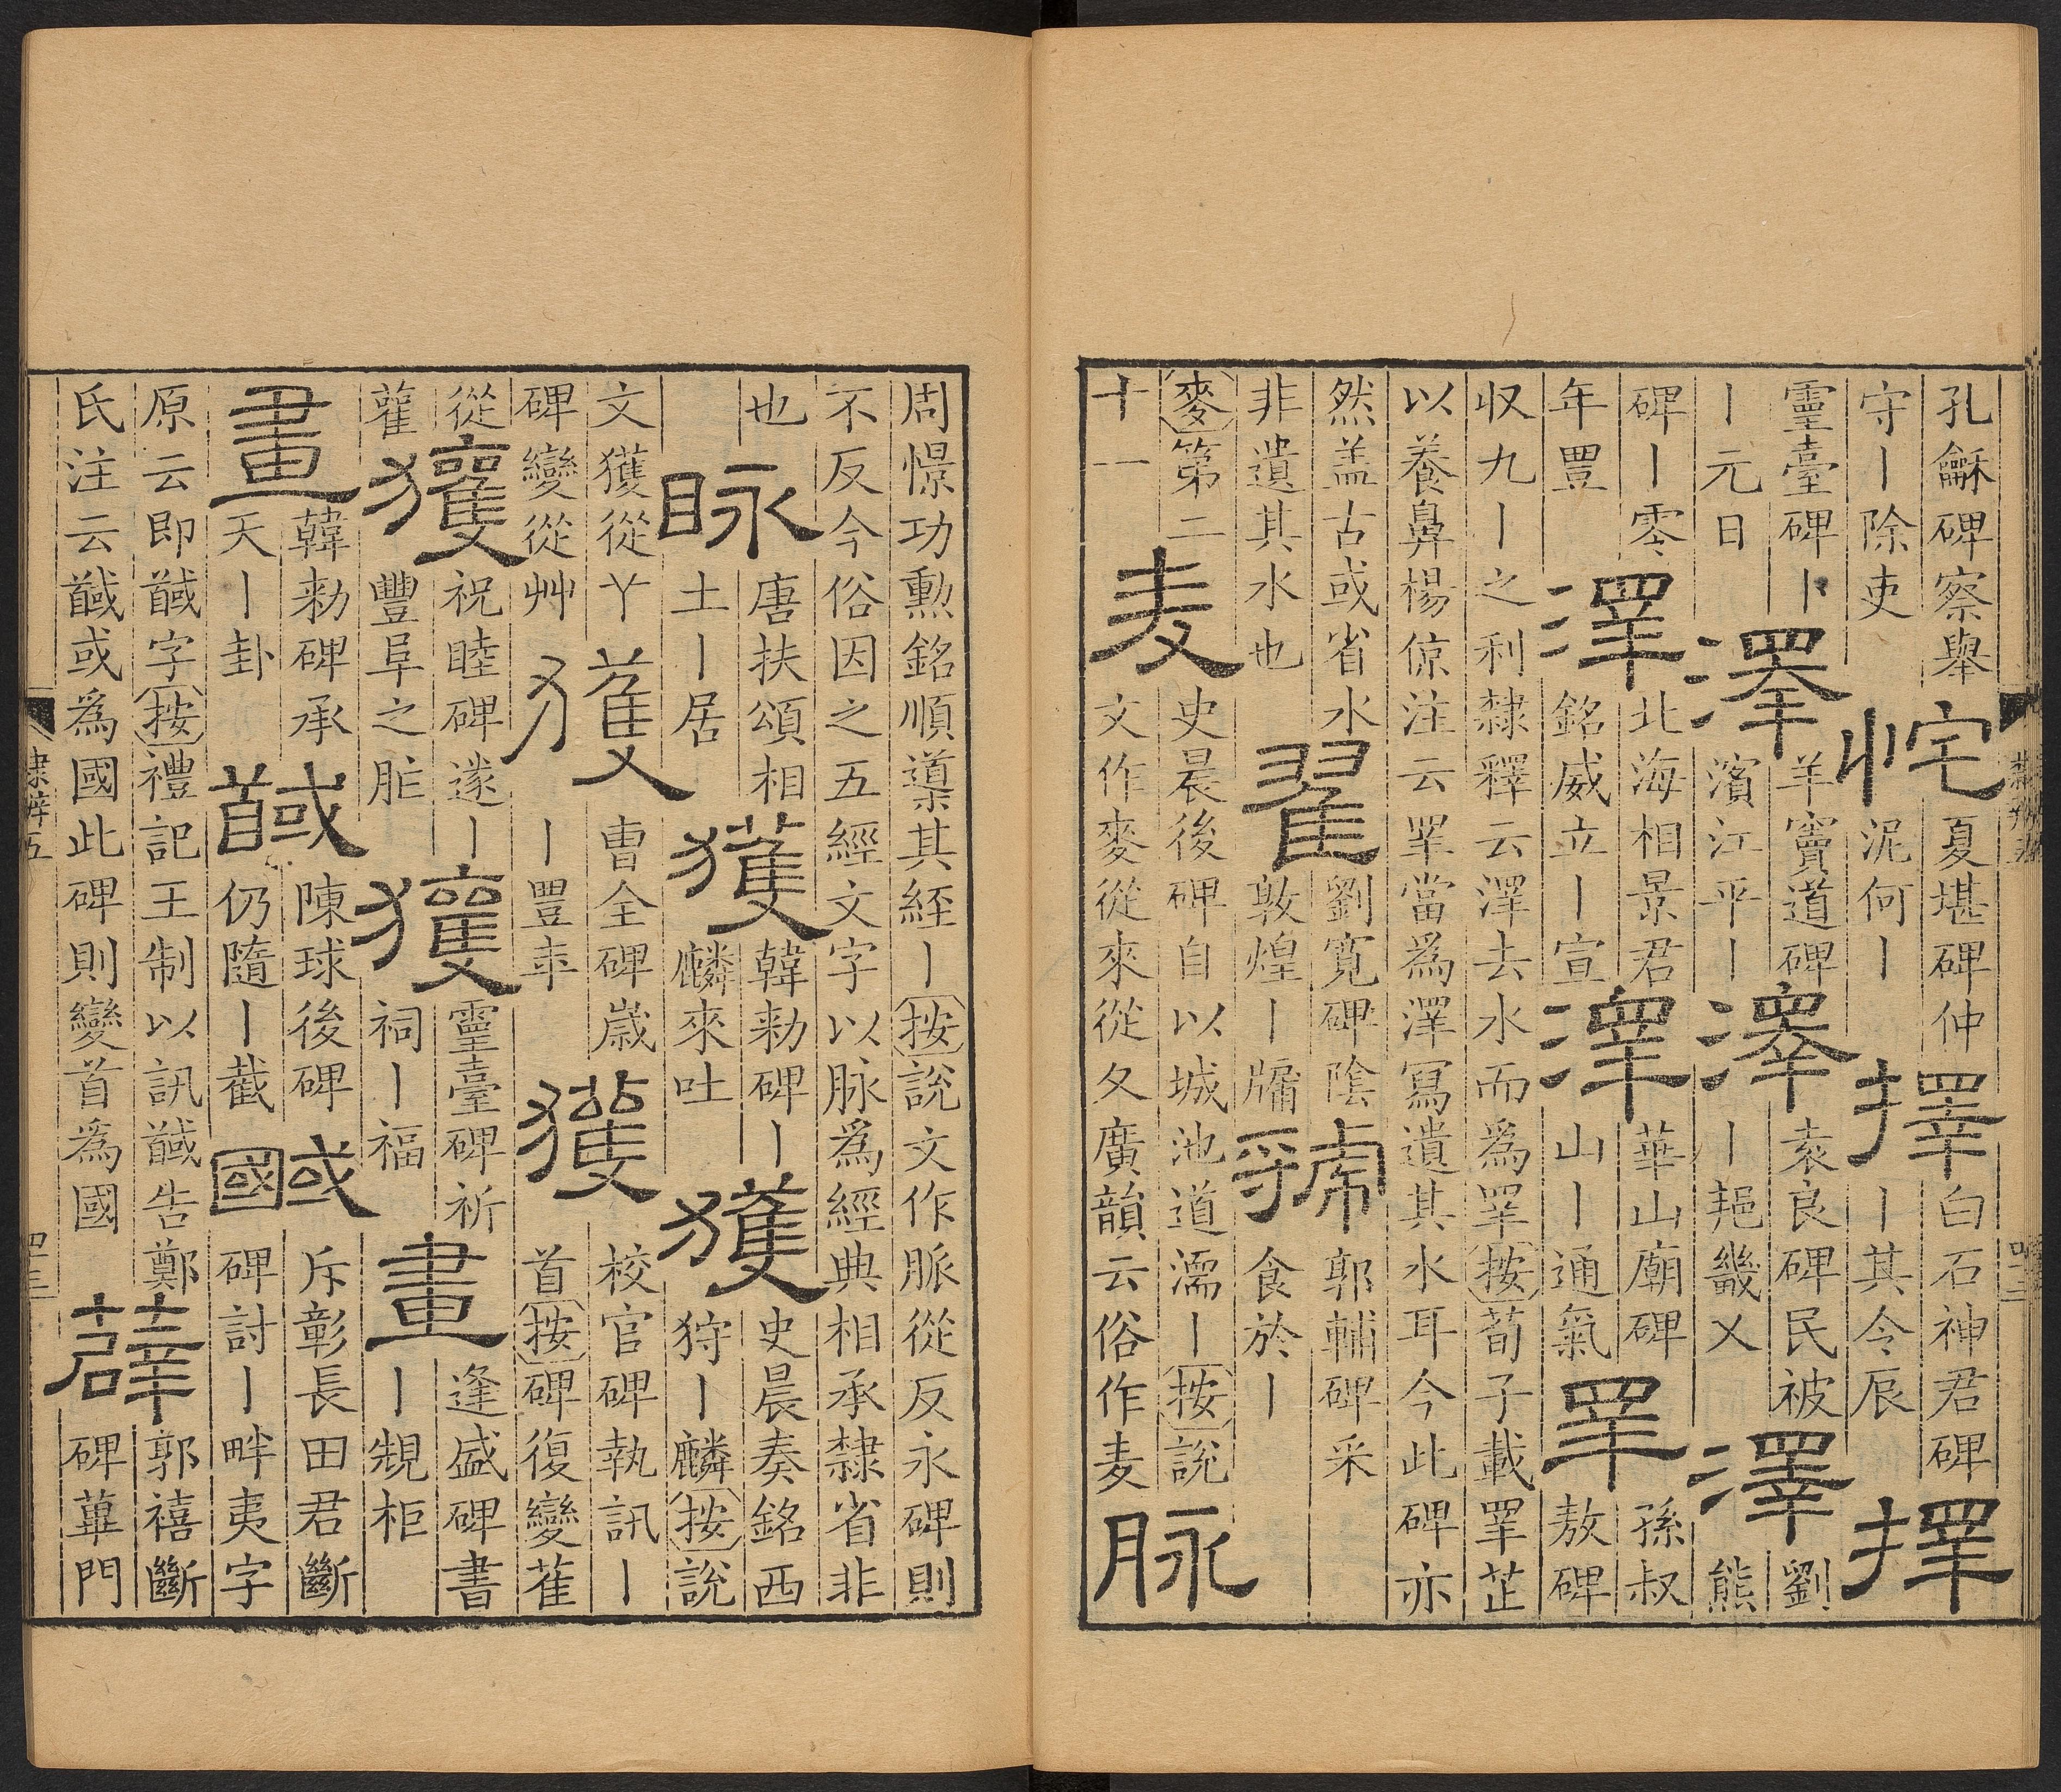 孔龢碑察舉
守丨除吏
㤞
夏堪碑仲
泥何丨
擇
白石神君碑
丨其令辰
擇
靈臺碑丨
丨元日
澤
羊竇道碑
濱江平丨
澤
袁良碑民被
丨畿乂
澤
劉
熊
碑丨零
年豐
澤
北海相景君
銘威立丨宣
澤
華山廟碑
山丨通氣
睪
孫叔
敖碑
収九丨之利隸釋云澤去水而為睪按荀子載睪芷
以養鼻楊倞注云睪當為澤冩遺其水耳今此碑亦
然盖古或省水
非遺其水也
翟
劉寬碑陰
敦煌丨牖
虢
郭輔碑采
食於丨
麥第二
十一
麦
史晨後碑自以城池道濡丨按說
文作麥從來從夂廣韻云俗作麦
脉
隸辨五
四十二
周憬功勲銘順其經丨按說文作脈從反永碑則
不反今俗因之五經文字以脉為經典相承隸省非
也
眿
唐扶頌相
土丨居
獲
韓勑碑丨
麟來吐
獲
史晨奏銘西
狩丨麟按說
文獲從丫
碑變從艸
獲
曹全碑歲
丨豐年
獲
校官碑執訊丨
首按碑復變萑
從
雚
獲
祝睦碑遂丨
豐阜之胙
獲
靈臺碑祈
祠丨福
畫
逢盛碑書
丨規柜
畫
韓勑碑承
天丨卦
馘
陳球後碑
仍隨丨截
國或
斥彰長田君斷
碑討丨畔夷字
原云即馘字按禮記王制以訊馘告鄭
氏注云馘或為國此碑則變首為國
薜
郭禧斷
碑蓽門
隸辨五
四十二